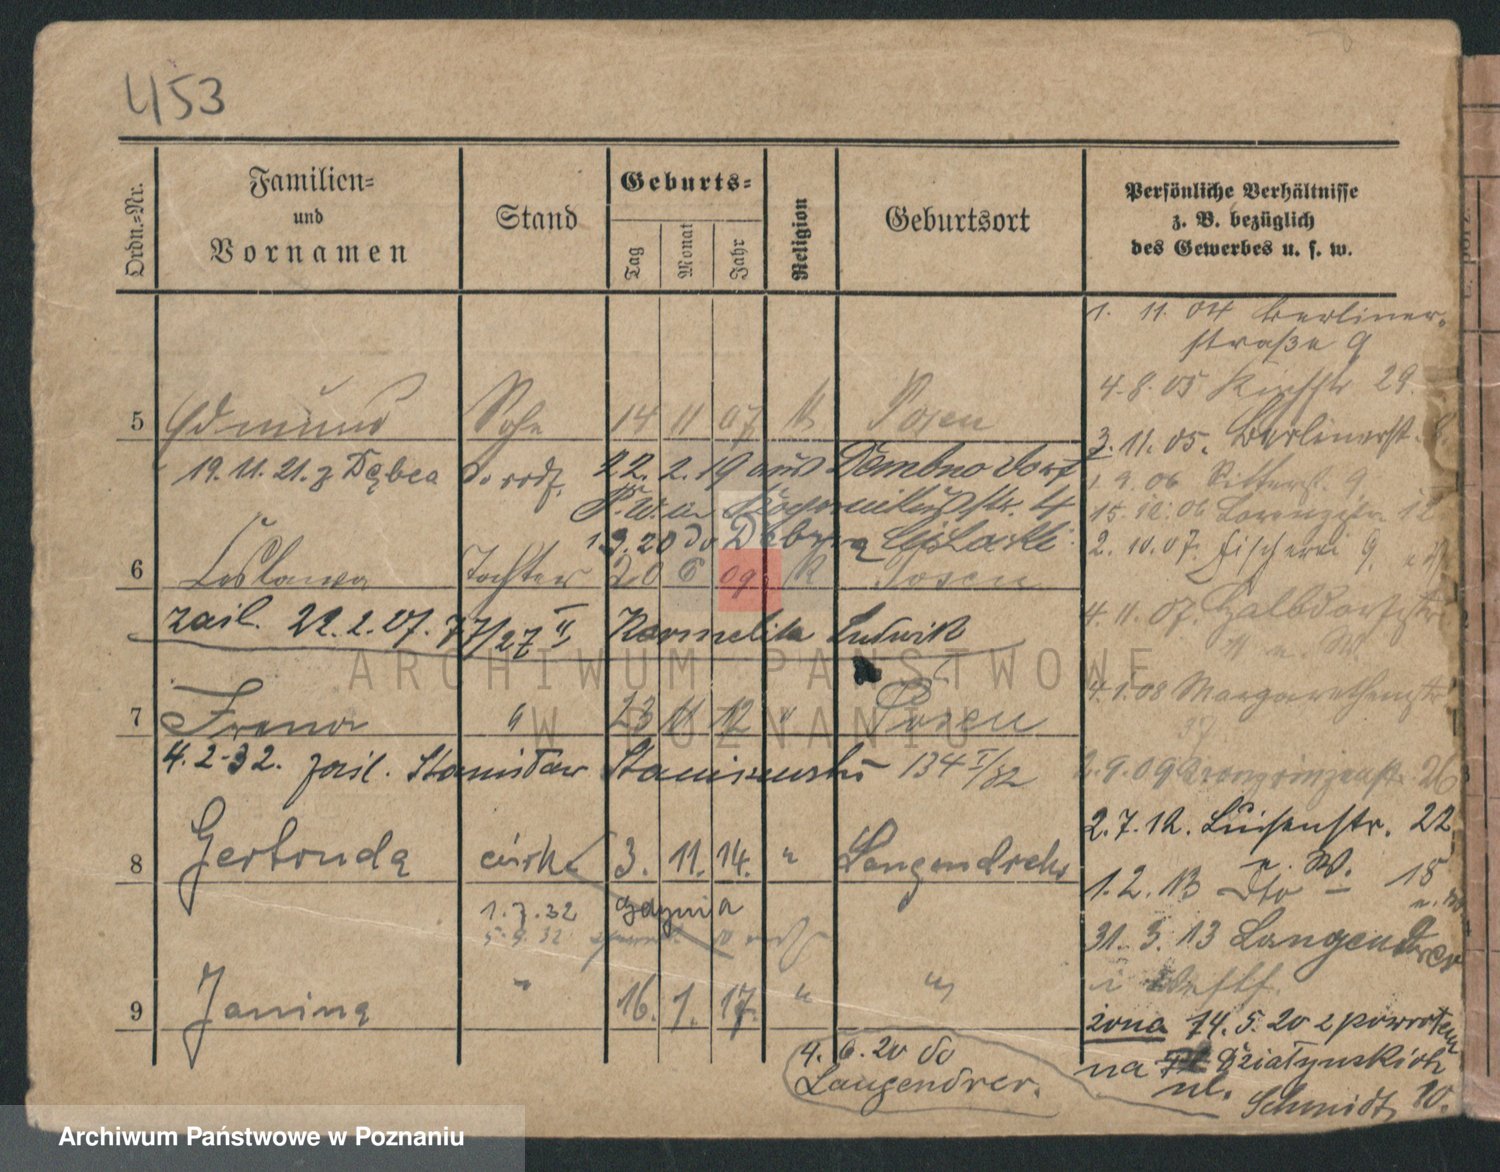 453
Ordn.=Nr.
Familien=
und
Vornamen
Stand
Geburts=
Tag
Monat
Jahr
Religion
Geburtsort
Persönliche Verhältnisse
z. B. bezüglich
des Gewerbes u. s. w.
1. 11. 04 Berliner-
straße 9
4. 8. 05 29.
5 Edmund Sohn 14 11 07 K Posen
3. 11. 05. Berlinerst. 8.
19. 11. 21. z Dębca do rodz. 22. 2. 19 aus Dembno
1 9. 06 Ritterst. 9
4
15. 10. 06 12
1. 9. 20 do
2. 10. 07. Fischerei 9.
6 Czesława Tochter 20 6 09 K Posen
zaśl. 22. 2. 27. 77/27 II Karmelita Ludwik
4. 11. 07. Halbdorfstr.
u. W.
7 Irena " 23 11 12 " Posen
4. 1. 08 Margarethenstr.
37
4. 2. 32. zaśl. Stanisław Staniszewski 134 I/32
2. 9. 09 Kronprinzenst. 26
2. 7. 12. Luisenstr. 22
8 Gertruda córka 3. 11. 14. " Langendreer
u. W.
1. 2. 13 Dto 18
1. 7. 32 Gdynia
5. 9. 32
31. 3. 13 Langendreer
i Westf.
9 Janina " 16. 1. 17. " "
żona 14. 5. 20 z powrotem
4. 6. 20 do
na Działyńskich
Langendreer.
ul.
Schmidt 10.
ARCHIWUM PAŃSTWOWE
W POZNANIU
Archiwum Państwowe w Poznaniu